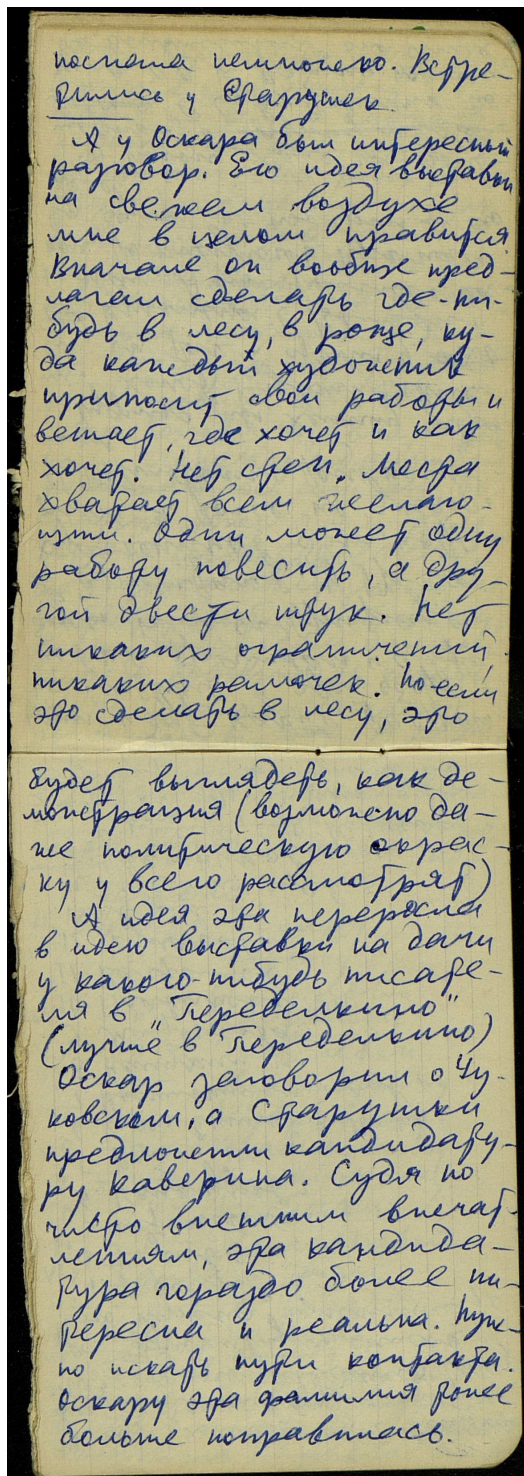 поспала немножко. Встре-
тились у Старушек
А у Оскара был интересный
разговор. Его идея выставки
на свежем воздухе
мне в целом нравится.
Вначале он вообще пред-
лагал сделать где-ни-
будь в лесу, в роще, ку-
да каждый художник
приносит свои работы и
вешает, где хочет и как
хочет. Нет стен. Места
хватает всем желаю-
щим. Один может одну
работу повесить, а дру-
гой двести штук. Нет
никаких ограничений,
никаких рамочек. Но если
это сделать в лесу, это
будет выглядеть, как де-
монстрация (возможно да-
же политическую окрас-
ку у всего рассмотрят)
А идея эта переросла
в идею выставки на дачи
у какого-нибудь писате-
ля в "Переделкино"
(лучше в Переделкино)
Оскар заговорил о Чу-
ковском, а Старушки
предложили кандидату-
ру Каверина. Судя по
чисто внешним впечат-
лениям, эта кандида-
тура гораздо более ин-
тересна и реальна. Нуж-
но искать пути контакта.
Оскару эта фамилия тоже
больше понравилась.